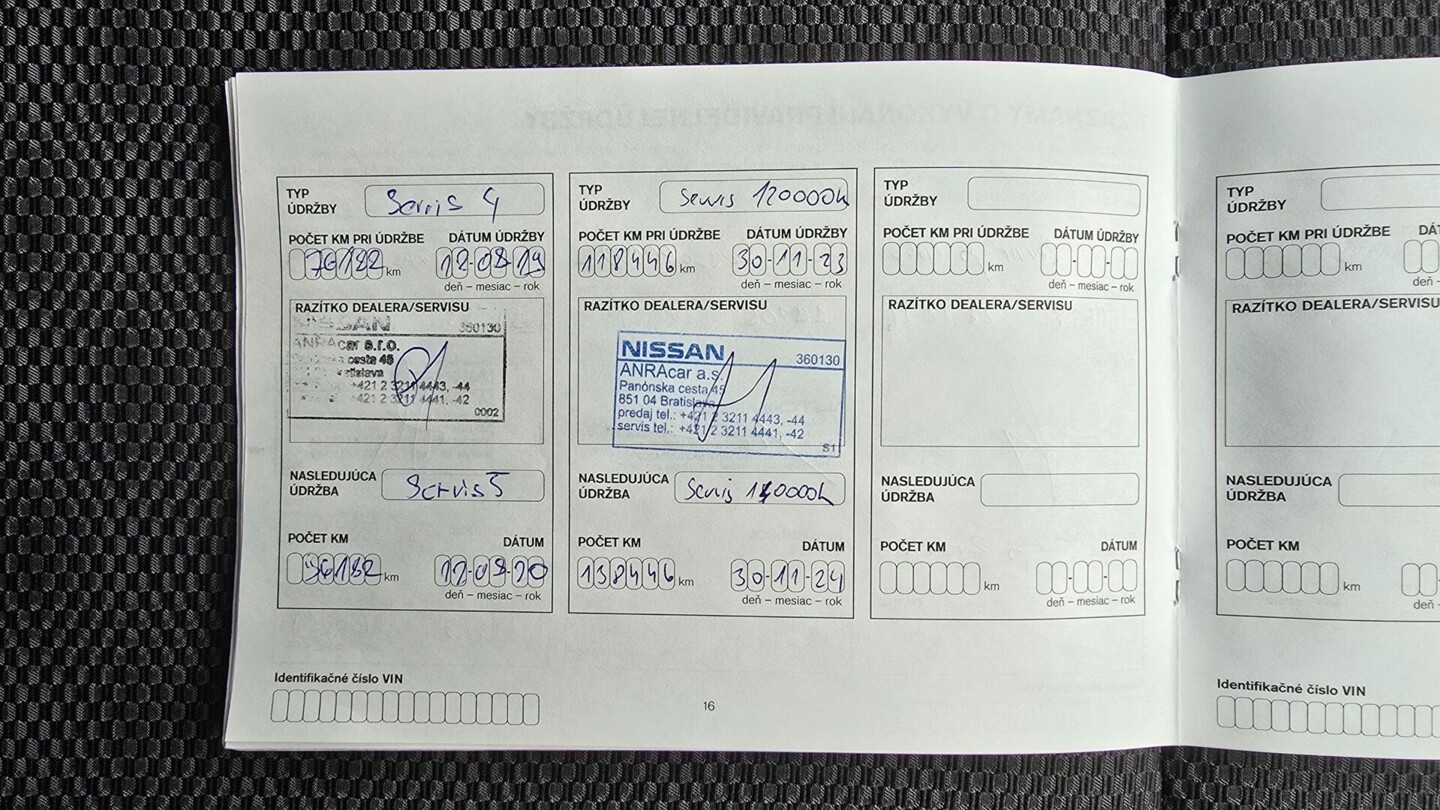 TYP
ÚDRŽBY
Servis 4
POČET KM PRI ÚDRŽBE
DÁTUM ÚDRŽBY
76182 km
12-08-19
deň – mesiac – rok
RAZÍTKO DEALERA/SERVISU
360130
ANRAcar s.r.o.
cesta 45
+421 2 3211 4443, -44
+421 2 3211 4441, -42
0002
NASLEDUJÚCA
ÚDRŽBA
Servis 5
POČET KM
DÁTUM
96182 km
12-08-20
deň – mesiac – rok
TYP
ÚDRŽBY
Servis 120000k
POČET KM PRI ÚDRŽBE
DÁTUM ÚDRŽBY
118446 km
30-11-23
deň – mesiac – rok
RAZÍTKO DEALERA/SERVISU
NISSAN
360130
ANRAcar a.s.
Panónska cesta 45
851 04 Bratislava
predaj tel.: +421 2 3211 4443, -44
servis tel.: +421 2 3211 4441, -42
S1
NASLEDUJÚCA
ÚDRŽBA
Servis 140000k
POČET KM
DÁTUM
138446 km
30-11-24
deň – mesiac – rok
TYP
ÚDRŽBY
POČET KM PRI ÚDRŽBE
DÁTUM ÚDRŽBY
km
deň – mesiac – rok
RAZÍTKO DEALERA/SERVISU
NASLEDUJÚCA
ÚDRŽBA
POČET KM
DÁTUM
km
deň – mesiac – rok
Identifikačné číslo VIN
16
TYP
ÚDRŽBY
POČET KM PRI ÚDRŽBE
km
deň
RAZÍTKO DEALERA/SERVISU
NASLEDUJÚCA
ÚDRŽBA
POČET KM
km
deň
Identifikačné číslo VIN